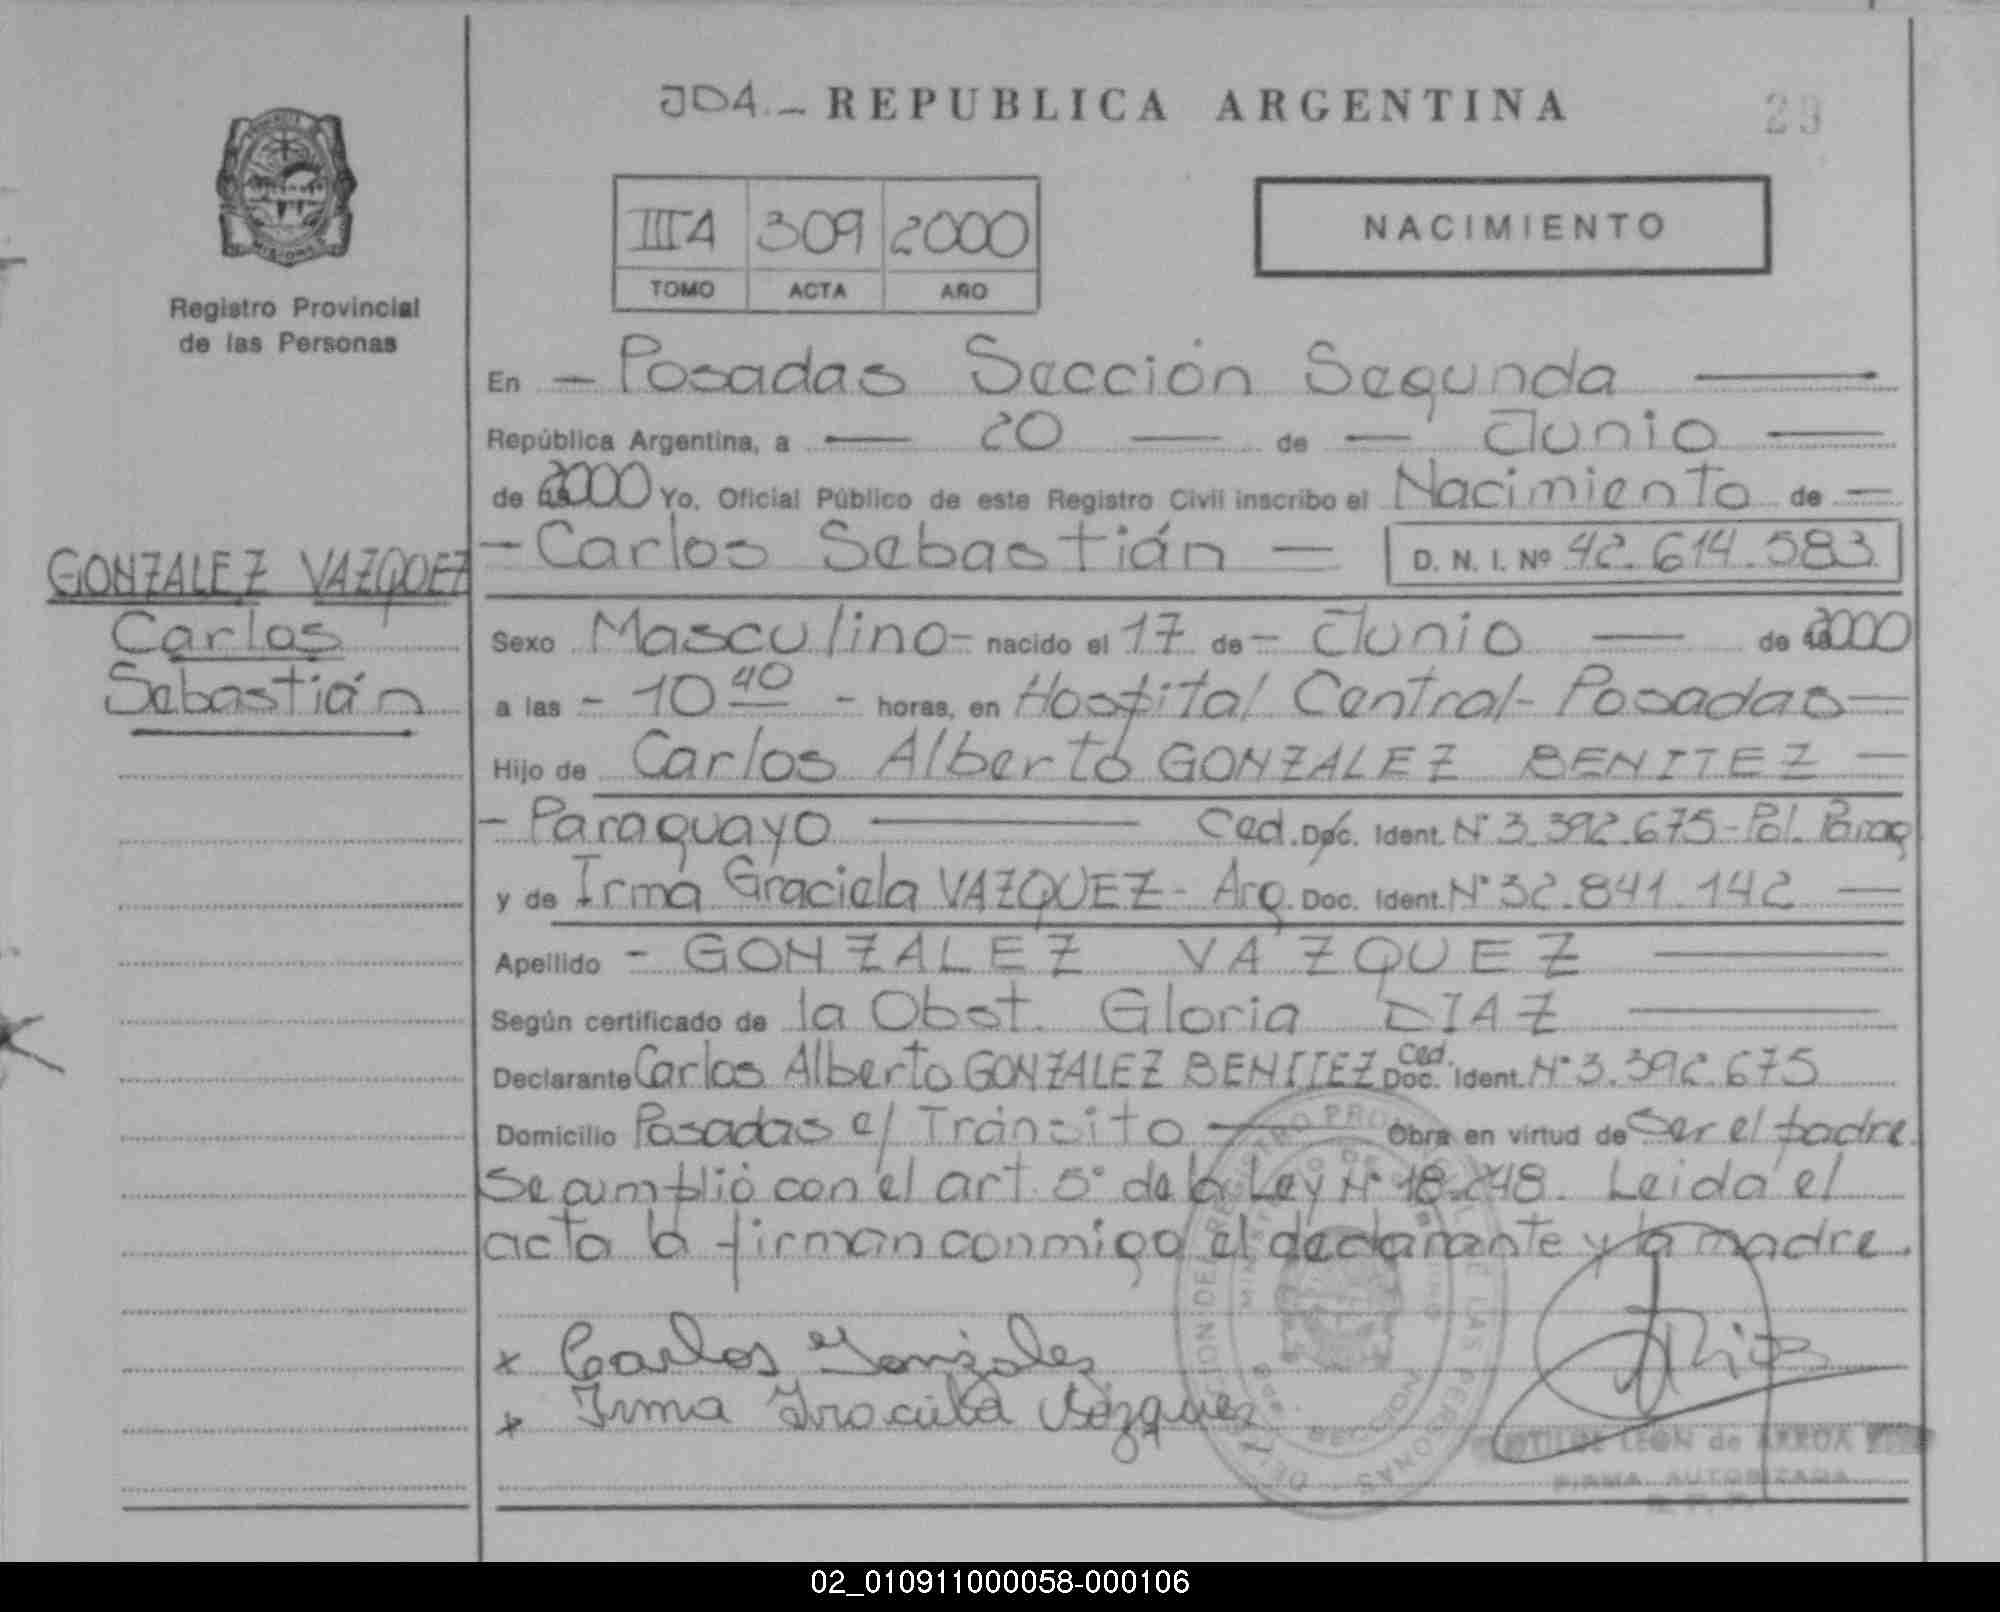 JDA.- REPUBLICA ARGENTINA
29
Registro Provincial
de las Personas
IIIA 309 2000
TOMO ACTA AÑO
NACIMIENTO
En - Posadas Sección Segunda
República Argentina, a — 20 — de — Junio —
de 2000 Yo, Oficial Público de este Registro Civil inscribo el Nacimiento de —
- Carlos Sebastián — D. N. I. Nº 42.614.583
GONZALEZ VAZQUEZ
Carlos
Sebastián
Sexo Masculino - nacido el 17 de - Junio — de 2000
a las - 10 40 - horas, en Hospital Central - Posadas —
Hijo de Carlos Alberto GONZALEZ BENITEZ —
- Paraguayo — Ced. Doc. Ident. Nº 3.392.675 - Pol. Parag
y de Irma Graciela VAZQUEZ - Arg. Doc. Ident. Nº 32.841.142 —
Apellido - GONZALEZ VAZQUEZ —
Según certificado de la Obst. Gloria DIAZ —
Declarante Carlos Alberto GONZALEZ BENITEZ Ced. Doc. Ident. Nº 3.392.675
Domicilio Posadas c/ Tránsito — Obra en virtud de Ser el padre.
Se cumplió con el art. 5º de la Ley Nº 18.248. Leida el
acta la firman conmigo el declarante y la madre.
x Carlos Gonzales
x Irma Graciela Vázquez
LEON de
FIRMA AUTORIZADA
02_010911000058-000106